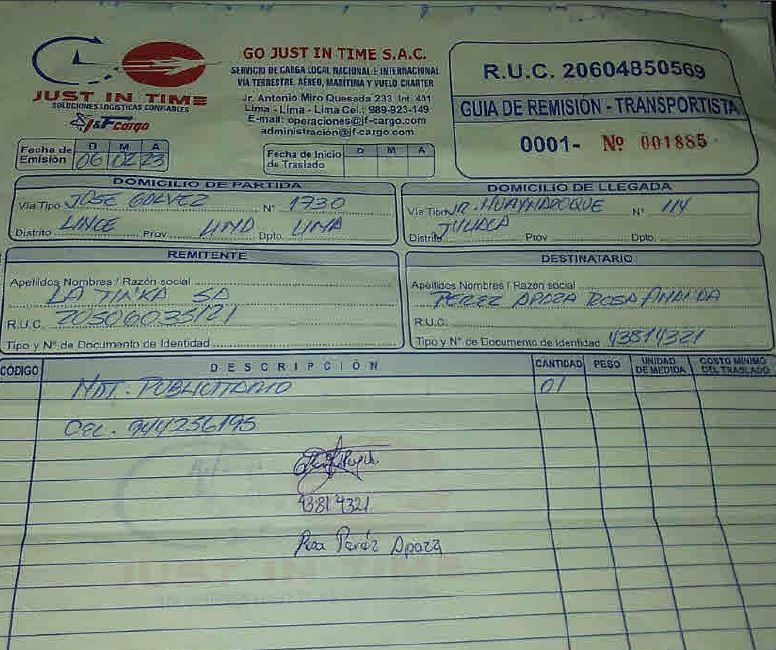 JUST IN TIME
SOLUCIONES LOGISTICAS CONFIABLES
J&F cargo
GO JUST IN TIME S.A.C.
SERVICIO DE CARGA LOCAL NACIONAL E INTERNACIONAL
VÍA TERRESTRE, AÉREO, MARÍTIMA Y VUELO CHARTER
Jr. Antonio Miro Quesada 233 Int. 451
Lima - Lima - Lima Cel.: 989-823-149
E-mail: operaciones@jf-cargo.com
administración@jf-cargo.com
R.U.C. 20604850569
GUIA DE REMISIÓN - TRANSPORTISTA
0001- Nº 001885
Fecha de Emisión D M A
06 02 23
Fecha de Inicio de Traslado D M A
DOMICILIO DE PARTIDA
Vía Tipo JOSE GALVEZ Nº 1730
Distrito LINCE Prov. LIMA Dpto. LIMA
DOMICILIO DE LLEGADA
Vía Tipo JR. HUAYNAROQUE Nº 114
Distrito JULIACA Prov. Dpto.
REMITENTE
Apellidos Nombres / Razón social
LA TINKA SA
R.U.C. 20506035121
Tipo y Nº de Documento de Identidad
DESTINATARIO
Apellidos Nombres / Razón social
PEREZ APAZA ROSA AMANDA
R.U.C.
Tipo y Nº de Documento de Identidad 43814321
CÓDIGO DESCRIPCIÓN CANTIDAD PESO UNIDAD DE MEDIDA COSTO MINIMO DEL TRASLADO
MAT. PUBLICITARIO 01
CEL. 944236195
43814321
Rosa Peréz Apaza
JUST IN TIME